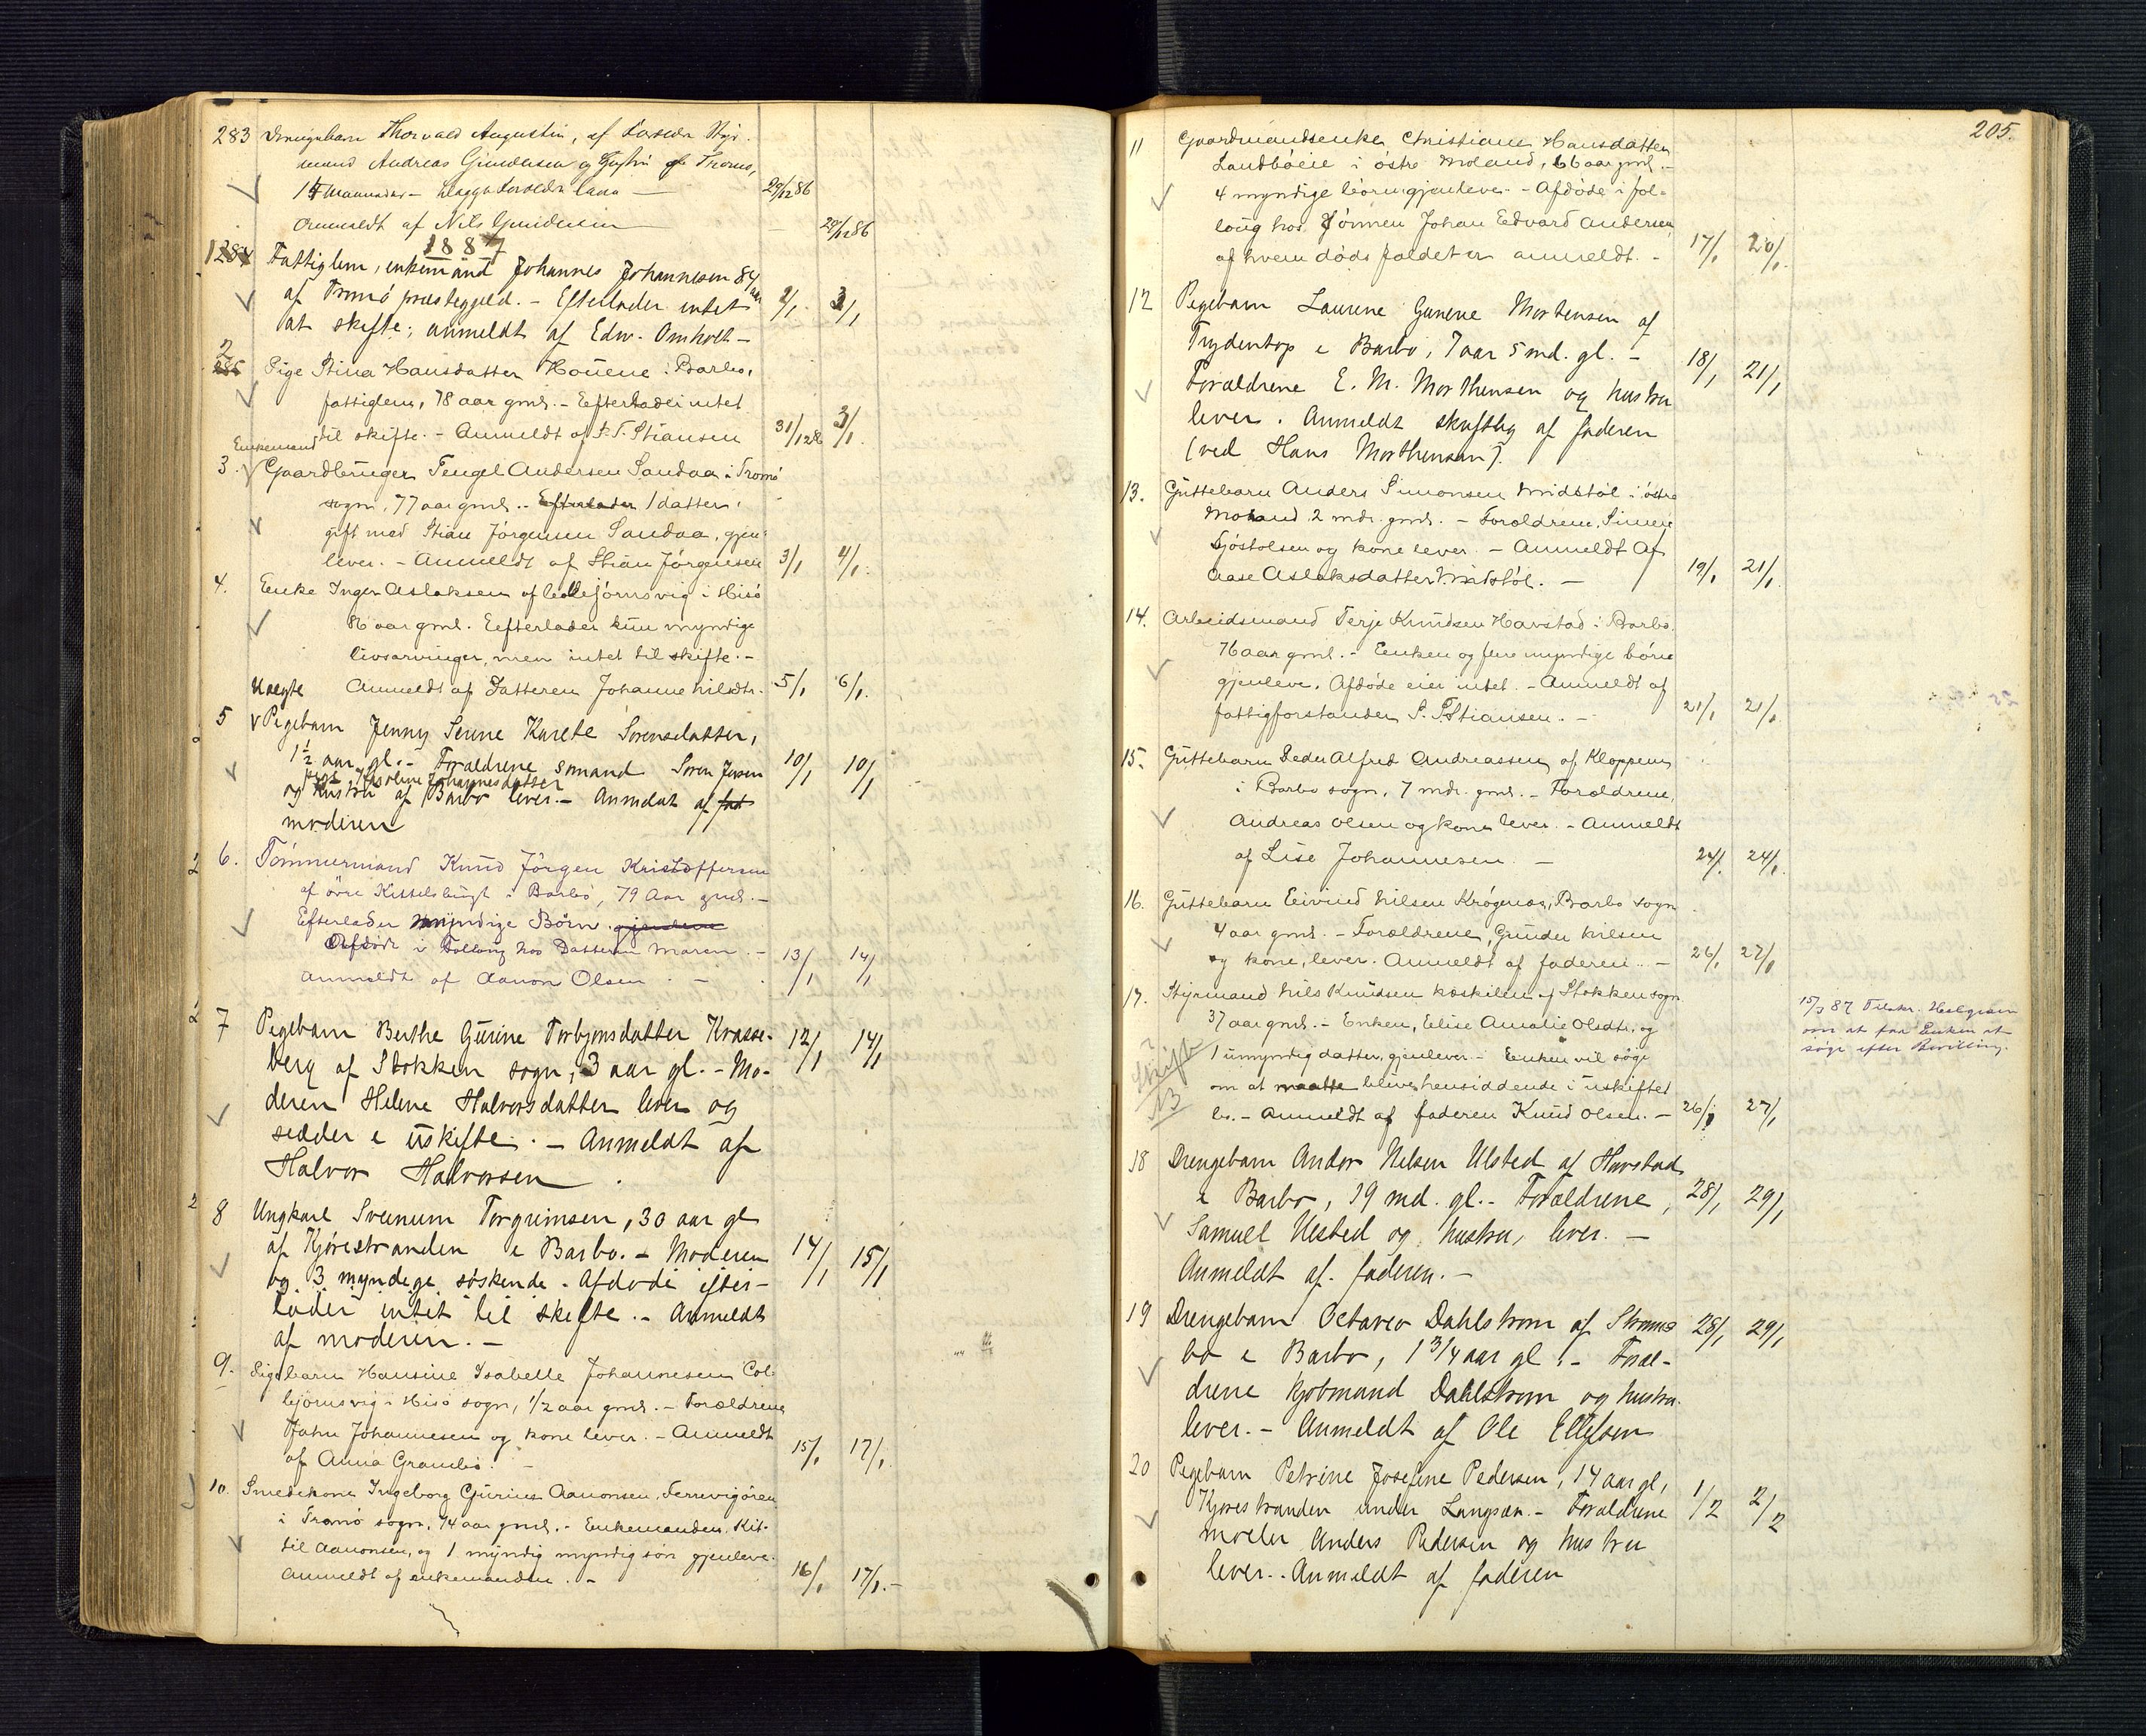 283 Drengebarn Thorvald Augustin, af Forældre Styr-
mand Andreas Gundersen og Hustru af Tromø,
Maaneder — begge Forældre leve — 29/12 86
Anmeldt af Nils Gundersen — 29/12 86
1887
1 284 Fattiglem, enkemand Johannes Johannesen 84 aar
af Tromø præstegjeld. - Efterlader intet 2/1 3/1
at skifte; anmeldt af Edv. Omholt -
2 285 Pige Stina Hansdatter Houene i Barbo,
fattiglem, 78 aar gml. - Efterlader intet
til skifte. - Anmeldt af S. T. Stiansen 31/12 86 3/1
Enkemand
3. Gaardbruger Tengel Andersen Sandaa i Tromø
sogn, 77 aar gml. - Efterlader 1 datter,
gift med Stian Jørgensen Sandaa, gjen-
lever. - Anmeldt af Stian Jørgensen 3/1 4/1.
4. Enke Inger Aslaksen af Colbjørnsvig i Hisø
86 aar gml. Efterlader kun myndige
livsarvinger, men intet til skifte. -
Anmeldt af Datteren Johanne Nilsdtr. 5/1 6/1.
Uægte
5 Pigebarn Jenny Serine Karete Sørensdatter,
1½ aar gl. - Forældrene sømand Søren Jensen 10/1 10/1
pige Karoline Johannesdatter
og hustru af Barbo lever. - Anmeldt af fad
moderen
6. Tømmermand Knud Jørgen Kristoffersen
af øvre Kittelsbugt i Barbo, 79 Aar gml. -
Efterlader myndige Børn. gjenleve
Afdøde i Follaug hos Datteren Maren. - 13/1 14/1
Anmeldt af Aanon Olsen. -
7 Pigebarn Berthe Gurine Torbjørnsdatter Krasse- 12/1 14/1
berg af Stokken sogn, 3 aar gl. - Mo-
deren Helene Halvorsdatter lever og
sedder i uskifte. - Anmeldt af
Halvor Halvorsen.
8 Ungkarl Sveinum Torgrimsen, 30 aar gl
af Kjørestranden i Barbo. - Moderen 14/1 15/1
og 3 myndige søskende. Afdøde efter-
lader intet til skifte. - Anmeldt
af moderen. -
9. Pigebarn Hansine Isabelle Johannesen Col-
bjørnsvig i Hisø sogn, 1/2 aar gml. - Forældrene
John Johannesen og kone lever. - Anmeldt
af Anna Grambo. - 15/1 17/1.
10. Smedekone Ingeborg Gurine Aanonsen, Færevigøren
i Tromø sogn, 74 aar gml. - Enkemanden, Kit-
til Aanonsen, og 1 myndig myndig søn gjenleve.
Anmeldt af enkemanden. - 16/1 17/1. -
205.
11 Gaardmandsenke Christiane Hansdatter
Landbøeie i østre Moland, 66 aar gml. -
4 myndige børn gjenlever. - Afdøde i fol-
loug hos Sønnen Johan Edvard Andersen,
af hvem dødsfaldet er anmeldt. - 17/1 20/1.
12 Pigebarn Laurine Gunene Mortensen af
Trydentop i Barbo, 7 aar 5 md. gl. - 18/1 21/1
Forældrene E. M. Morthensen og hustru
lever. Anmeldt skriftlig af faderen
(ved Hans Morthensen).
13. Guttebarn Anders Simonsen Midtbøl i østre
Moland 2 mdr. gml. - Forældrene, Simen
Gjøstolsen og kone lever. - Anmeldt af
Aase Aslaksdatter Midtbøl. - 19/1 21/1
14. Arbeidsmand Terje Knudsen Havstad i Barbo,
76 aar gml. - Enken og flere myndige børn
gjenleve. Afdøde eier intet. - Anmeldt af
fattigforstander S. T. Stiansen. - 21/1 21/1
15. Guttebarn Peder Alfred Andreassen af Kloppene
i Barbo sogn, 7 mdr. gml. - Forældrene,
Andreas Olsen og kone lever. - Anmeldt
af Lise Johannesen. - 24/1. 24/1.
16. Guttebarn Eivind Nilsen Krøgenæs, Barbo sogn
4 aar gml. - Forældrene, Gunder Nilsen
og kone, lever. Anmeldt af faderen. - 26/1 27/1
17. Styrmand Nils Knudsen Koskilen af Stokken sogn
37 aar gml. - Enken, Elise Amalie Olsdtr. og
1 umyndig datter, gjenlever. - Enken vil søge
om at maatte blive hensiddende i uskiftet
bo. - Anmeldt af faderen Knud Olsen. - 26/1 27/1
Skifte
NB
15/3 87
om at faa Enken at
søge efter Bevilling.
18 Drengebarn Andor Nilsen Ulsted af Havstad
i Barbo, 19 md. gl. - Forældrene, 28/1 29/1
Samuel Ulsted og hustru, lever. -
Anmeldt af faderen. -
19 Drengebarn Octavio Dahlstrom af Strøms- 28/1 29/1
bo i Barbo, 1 3/4 aar gl. - Foræl-
drene kjøbmand Dahlstrom og hustru
lever. - Anmeldt af Ole Ellefsen
20 Pigebarn Petrine Josefine Pedersen, 14 aar gl, 1/2 2/2
Kjørestranden under Langsæ. - Forældrene
møller Anders Pedersen og hustru
lever. - Anmeldt af faderen